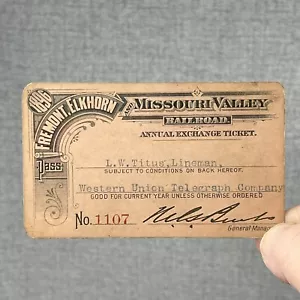 1896
FREMONT, ELKHORN
AND MISSOURI VALLEY
RAILROAD.
Pass
ANNUAL EXCHANGE TICKET.
L.W.Titus, Lineman,
SUBJECT TO CONDITIONS ON BACK HEREOF.
Western Union Telegraph Company
GOOD FOR CURRENT YEAR UNLESS OTHERWISE ORDERED
No. 1107
General Manag